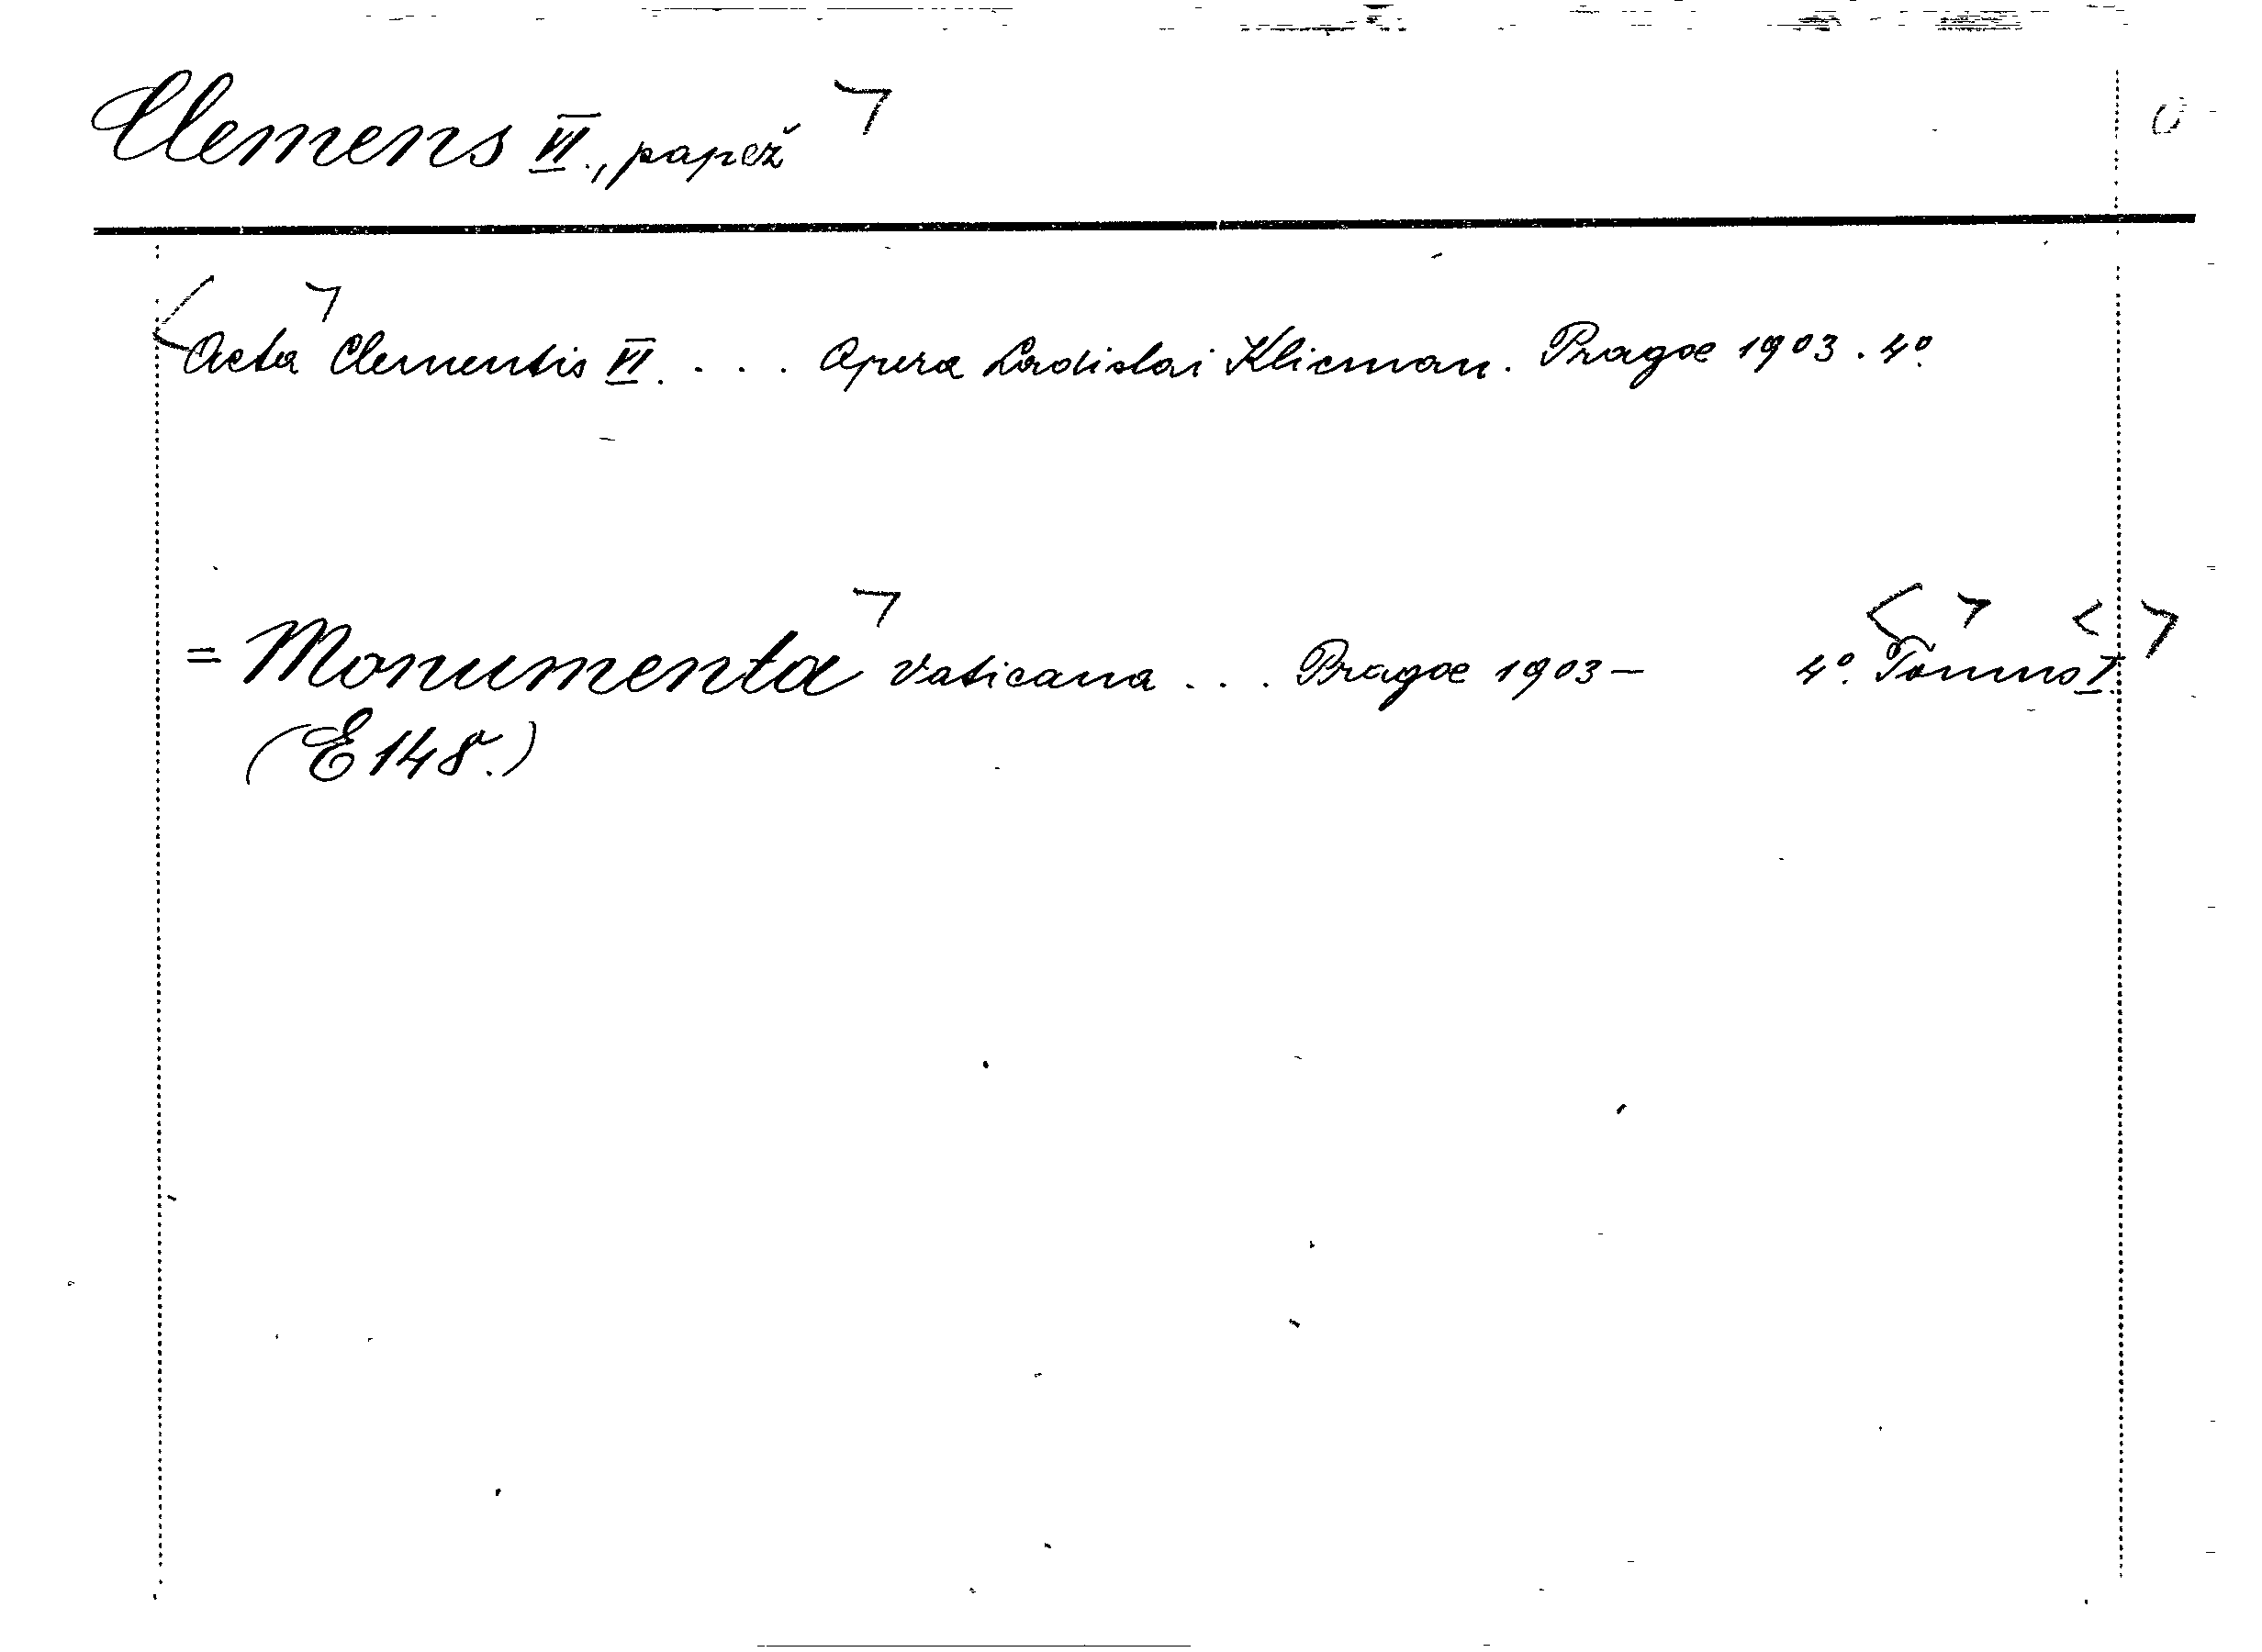 Clemens VI., papež
Acta Clementis VI. . . . Opera Ladislai Klicman. Pragae 1903. 4º.
= Monumenta Vaticana . . . Pragae 1903 – 4º. Tomus I.
(E 148.)